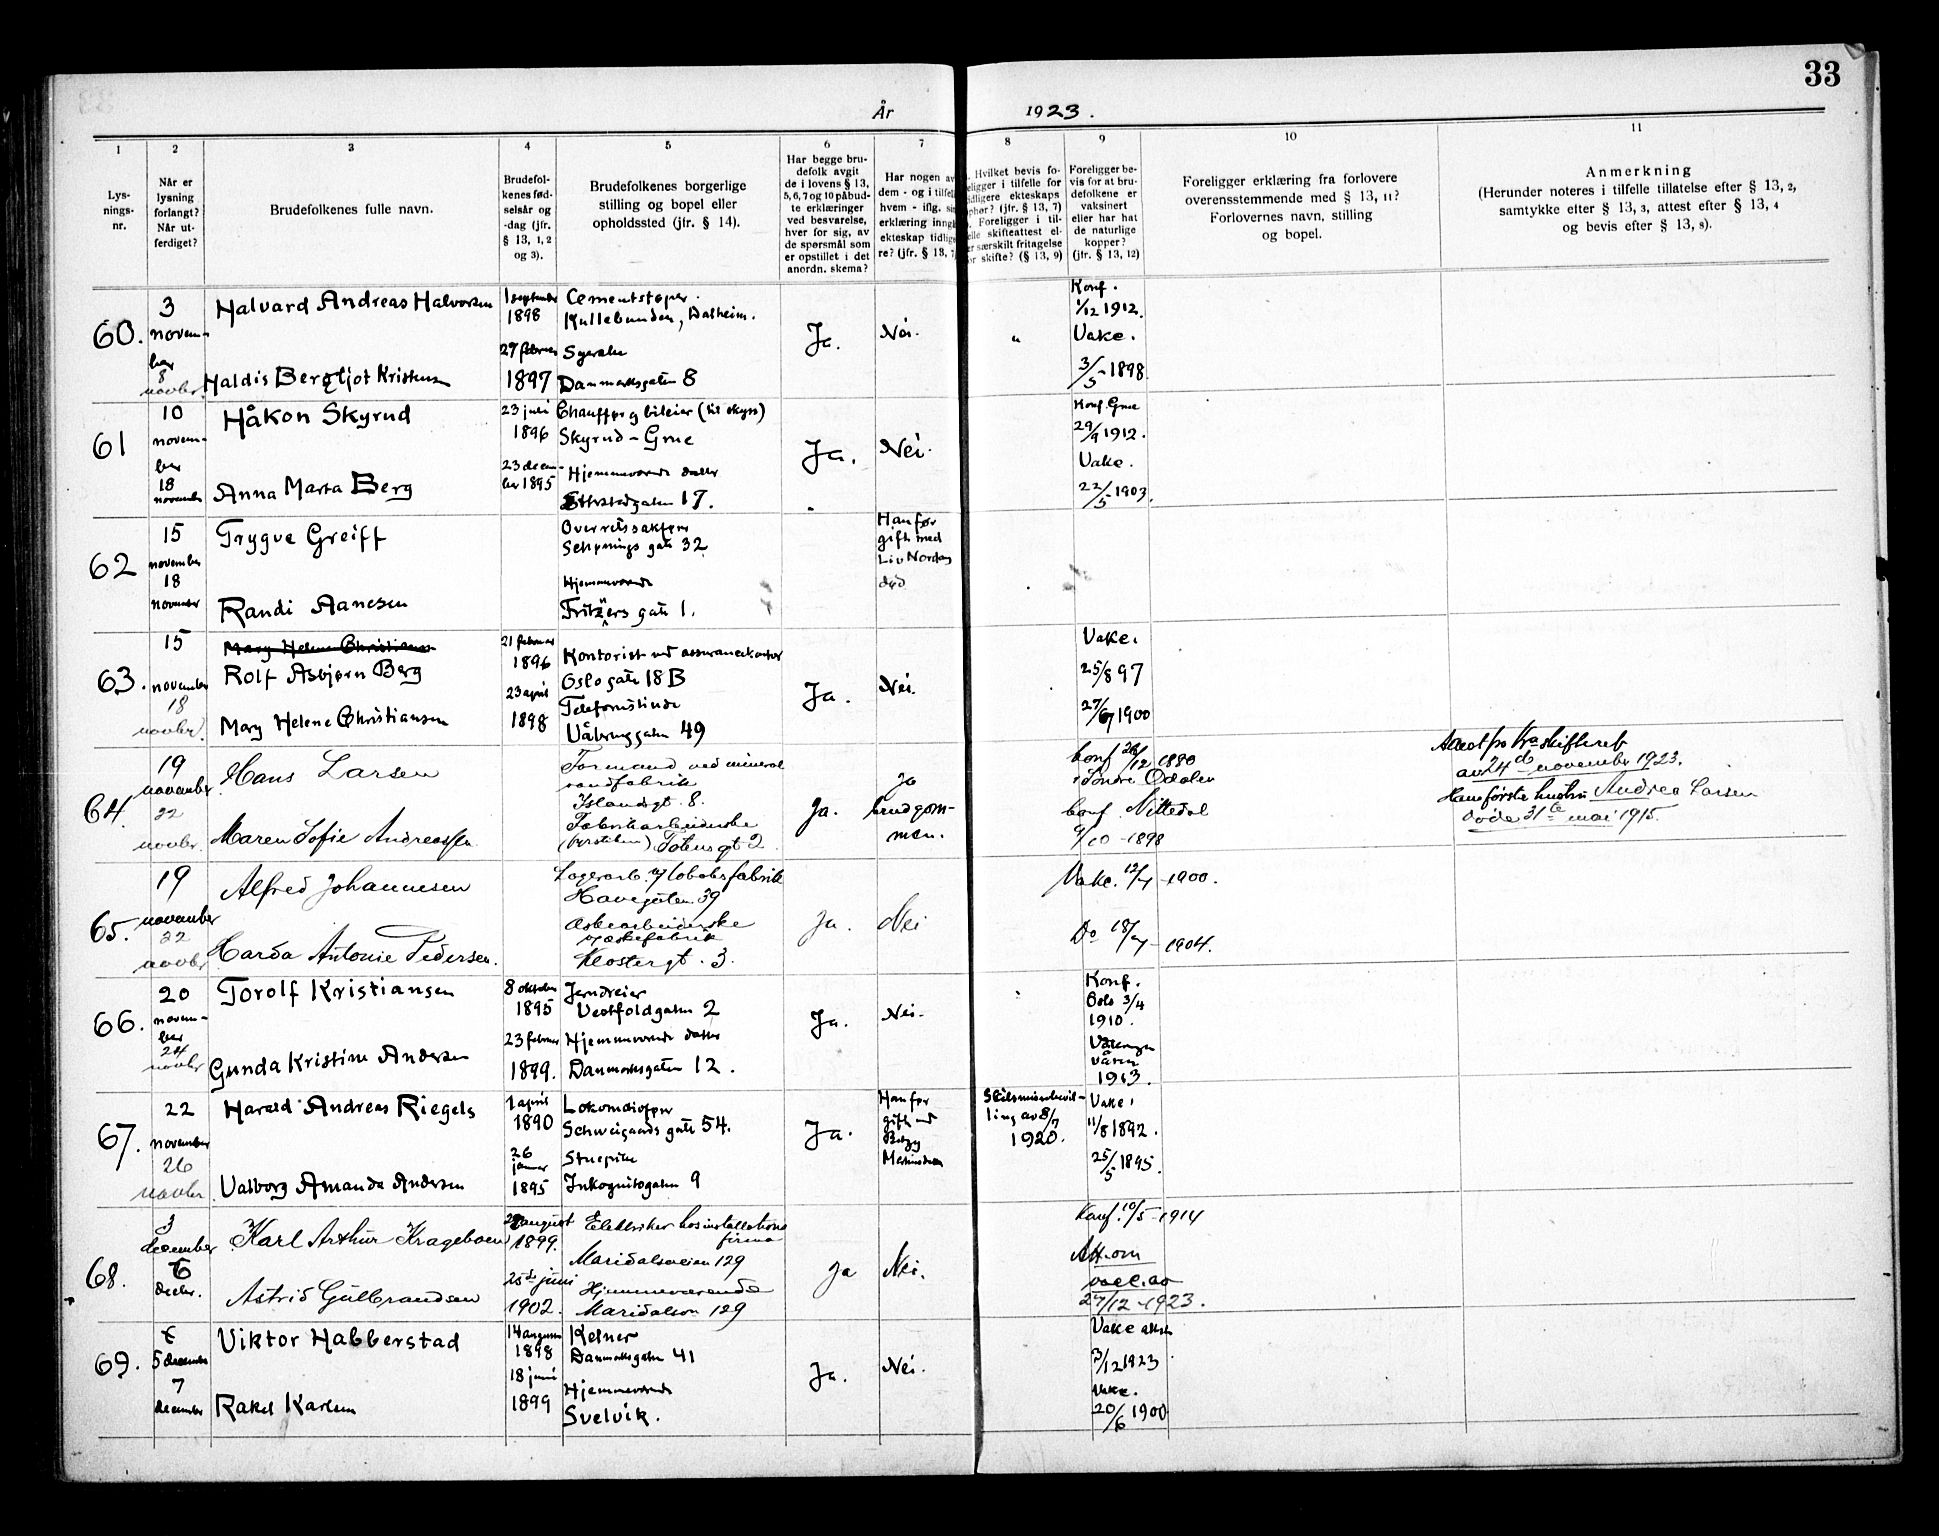 33
År 1923.
1
Lys-
nings-
nr.
2
Når er
lysning
forlangt?
Når ut-
ferdiget?
3
Brudefolkenes fulle navn.
4
Brudefol-
kenes fød-
selsår og
-dag (jfr.
§ 13, 1, 2
og 3).
5
Brudefolkenes borgerlige
stilling og bopel eller
opholdssted (jfr. § 14).
6
Har begge bru-
defolk avgit
de i lovens § 13,
5, 6, 7 og 10 påbud-
te erklæringer
ved besvarelse,
hver for sig, av
de spørsmål som
er opstillet i det
anordn. skema?
7
Har nogen av
dem - og i tilfelle
hvem - iflg. sin
erklæring inngå
ekteskap tidlige
re? (jfr. § 13, 7)
8
Hvilket bevis fo-
religger i tilfelle for
tidligere ekteskaps
ophør? (jfr. § 13, 7)
Foreligger i til-
felle skifteattest el-
er særskilt fritagelse
for skifte? (§ 13, 9)
9
Foreligger be-
vis for at bru-
defolkene er
vaksinert
eller har hat
de naturlige
kopper?
(jfr. § 13, 12)
10
Foreligger erklæring fra forlovere
overensstemmende med § 13, 11?
Forlovernes navn, stilling
og bopel.
11
Anmerkning
(Herunder noteres i tilfelle tillatelse efter § 13, 2,
samtykke efter § 13, 3, attest efter § 13, 4
og bevis efter § 13, 8).
60.
3
novem-
ber
8
novbr.
Halvard Andreas Halvorsen
Haldis Bergljot Kristensen
1 september
1898
27 februar
1897
Cementstøper.
Kullebunden, Dalheim.
Syerske
Danmarksgaten 8
Ja.
Nei.
"
Konf.
1/12 1912.
Vake.
3/5 - 1898
61
10
novem-
ber
18
november
Håkon Skyrud
Anna Marta Berg
23 juli
1896
23 decem-
ber 1895
Chauffør og bileier (til skyss)
Skyrud - Grue
Hjemmeværende datter
gaten 17.
Ja.
Nei.
Konf. Grue
29/9 1912.
Vake.
22/5 1903.
62
15
november
18
november
Trygve Greiff
Randi Aanesen
Overretssakfører
Schønings gate 32
Hjemmeværende
Fritzners gate 1.
Han før
gift med
Liv Nordan
død
63.
15
november
18
novbr.
Mary Helene Christiansen
Rolf Asbjørn Berg
Mary Helene Christiansen
21 februar
1896
23 april
1898
Kontorist ved assurancekontor
Oslo gate 18 B
Telefonistinde
Vålerenggaten 49
Ja.
Nei.
Vake.
25/8 97
27/6 1900
64.
19
november
22
novbr.
Hans Larsen
Maren Sofie Andreassen
Formand ved mineral
vandfabrik
Islandsgt. 8.
Fabrikarbeiderske
Totensgt 2
Ja.
Ja
brudgom-
men.
konf 26/12 1880
i Søndre Odalen
konf. Nittedal
9/10 - 1898
Attest fra Kra skifteret
av 24de november 1923.
Hans første hustru Andrea Larsen
døde 31te mai 1915.
65.
19
november
22
novbr.
Alfred Johannesen
Harda Antonie Pedersen.
Lagerarb. v/ tobaksfabrik
Havegaten 39
Æskearbeiderske
v/ æskefabrik
Klostergt. 3.
Ja.
Nei
Vake. 12/7 - 1900.
Do 18/7 - 1904.
66.
20
novem-
ber
24
novbr
Torolf Kristiansen
Gunda Kristine Andersen
8 oktober
1895
23 februar
1899.
Jerndreier
Vestfoldgaten 2
Hjemmeværende datter
Danmarksgaten 12.
Ja.
Nei.
Konf.
Oslo 3/4
1910.
Vålerengen
våren
1913.
67.
22
november
26
novbr.
Harald Andreas Riegels
Valborg Amanda Andersen
1 april
1890
26
januar
1895
Lokomotivfører
Schweigaards gate 54.
Stuepike
Inkognitogaten 9
Ja.
Han før
gift med
Skilsmissebevil-
ling av 8/7
1920.
Vake.
11/8 1892.
25/5 1895.
68.
3
december
6
decbr.
Karl Arthur Krageboen
Astrid Gulbrandsen
29 august
1899.
25de juni
1902.
Elektriker hos installations
firma
Maridalsveien 129
Hjemmeværende
Maridalsvn 129
Ja
Nei.
Konf. 10/5 - 1914
Att. om
vacc. av
27/12 - 1923.
69.
5 december
7
december
Viktor Habberstad
Rakel Karlsen
14 august
1898
18 juni
1899
Kelner
Danmarksgaten 41
Hjemmeværende
Svelvik.
Ja.
Nei.
Vake attest
3/12 1923
Vake.
20/6 1900